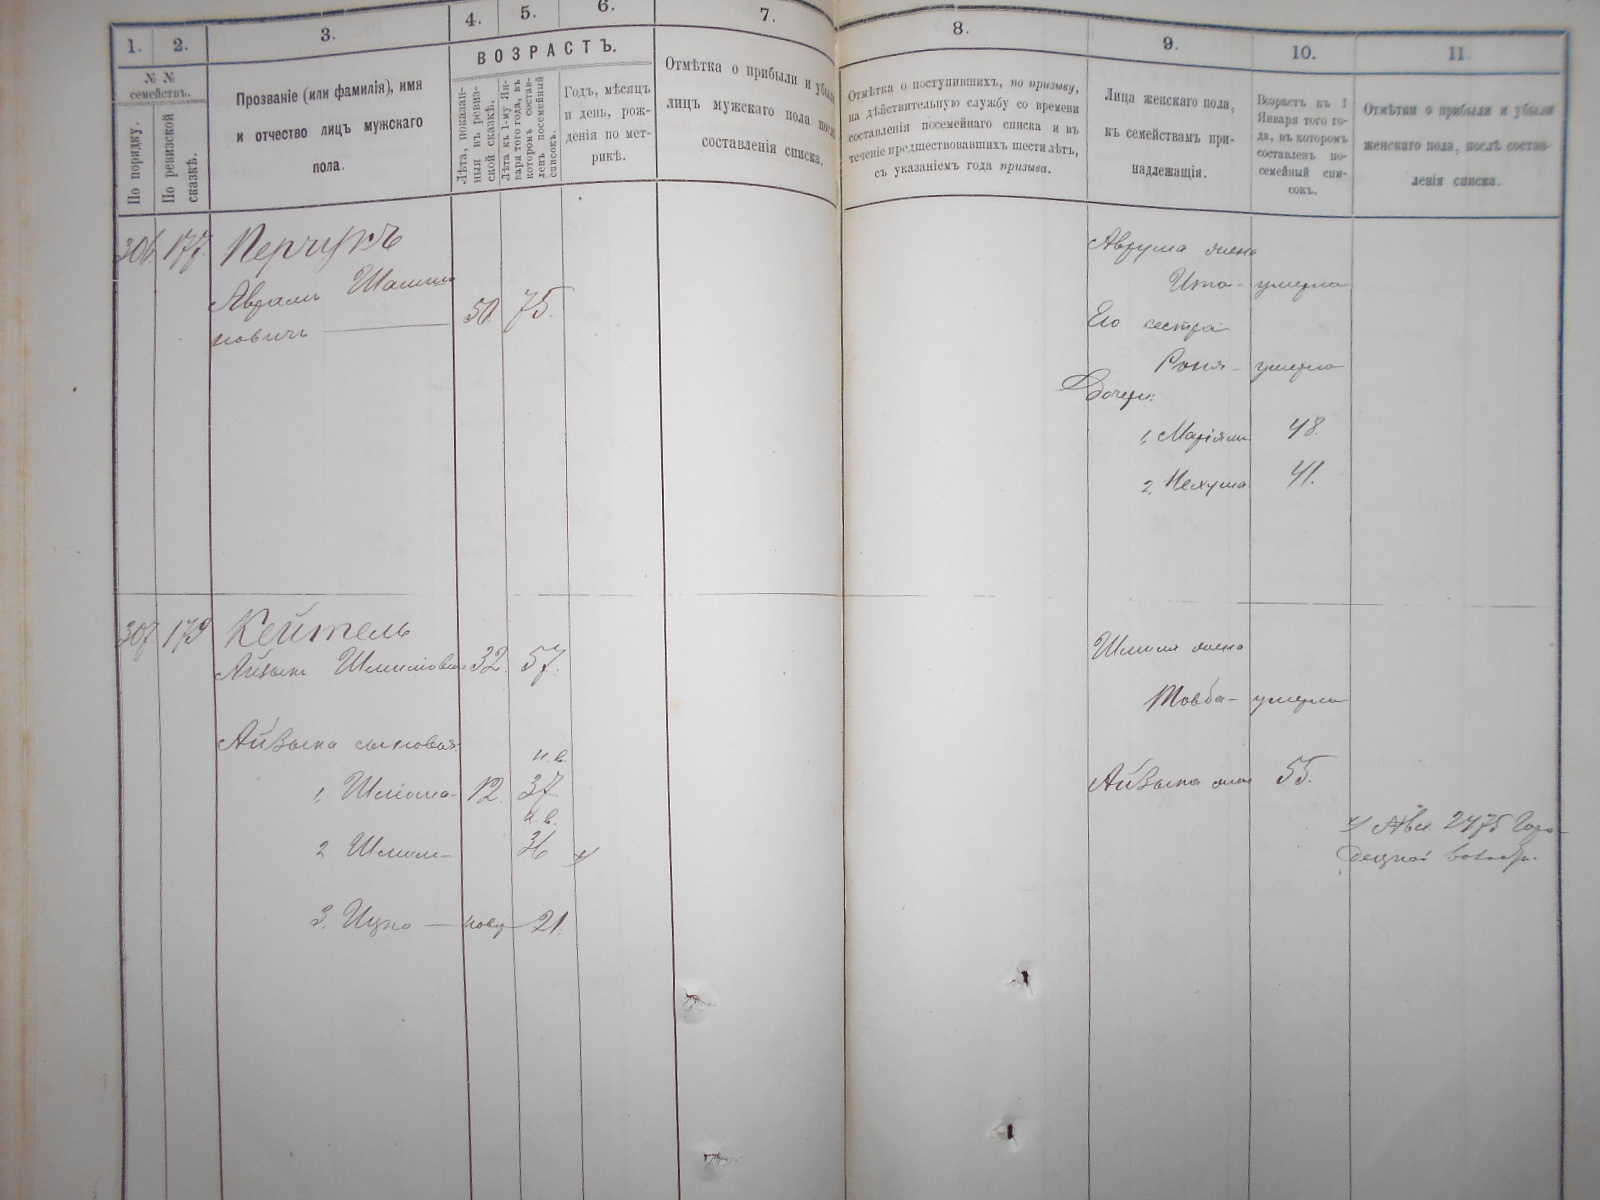 1.
2.
3.
4.
5.
6.
7.
8.
9.
10.
11
№ №
семействъ.
По порядку.
По ревизской
сказкѣ.
Прозваніе (или фамилія), имя
и отчество лицъ мужскаго
пола.
ВОЗРАСТЪ.
Лѣта, показан-
ныя въ ревиз-
ской сказкѣ.
Лѣта къ 1-му Ян-
варя того года, въ
которомъ состав-
ленъ посемейный
списокъ.
Годъ, мѣсяцъ
и день, рож-
денія по мет-
рикѣ.
Отмѣтка о прибыли и убыли
лицъ мужскаго пола послѣ
составленія списка.
Отмѣтка о поступившихъ, по призыву,
на дѣйствительную службу со времени
составленія посемейнаго списка и въ
теченіе предшествовавшихъ шести лѣтъ,
съ указаніемъ года призыва.
Лица женскаго пола,
къ семействамъ при-
надлежащія.
Возрастъ къ 1
Января того го-
да, въ которомъ
составленъ по-
семейный спи-
сокъ.
Отмѣтки о прибыли и убыли
женскаго пола, послѣ состав-
ленія списка.
306 177 Перчукъ
Аврамъ
новичъ 50 75.
Аврума жена
Ита - умерла
Его сестра
Роня - умерла
Дочери:
1, Маріямъ 48.
2, Нехума 41.
307. 179 Кейтель
Айзыкъ Шмулевичъ 32. 57.
Айзыка сыновья
1, Шліома 12. 37
н.в.
2 Шмуль 36
н.в.
3. Ицко — нову 21.
Шмуля жена
Товба - умерла
Айзыка жена 55.
2475